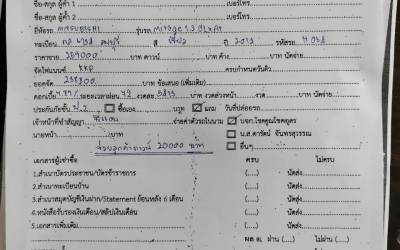 ชื่อ-สกุล ผู้ค้ำ 1 เบอร์โทร.
ชื่อ-สกุล ผู้ค้ำ 2 เบอร์โทร.
ยี่ห้อรถ MITSUBISHI รุ่นรถ Mirage 1.2
ทะเบียน สี ปี 2012 รหัสรถ
ราคาขาย 259000 บาท ดาวน์ บาท ค้าง บาท นัดจ่าย
จัดไฟแนนซ์ KKP ครบกำหนดวันที่
ยอดจัด บาท ข้อเสนอ (เพิ่มเติม)
ดอกเบี้ย ระยะเวลาผ่อน 72 งวดละ งวดล่วงหน้า บาท นัดจ่าย
ประกันภัยชั้น ซื้อเอง บาท แถม วันที่ปล่อยรถ
เจ้าหน้าที่ทำสัญญา จ่ายค่าตัวรถในนาม บจก.โชคคูณโชคออโต
นายหน้า บาท น.ส.ดารัตน์ จันทรสุวรรณ
ช่วยลูกค้าดาวน์ 20000 บาท อื่นๆ
เอกสารผู้เช่าซื้อ ครบ ไม่ครบ
1.สำเนาบัตรประชาชน/บัตรข้าราชการ (.....) นัดส่ง (.....)
2.สำเนาทะเบียนบ้าน (.....) นัดส่ง (.....)
3.สำเนาสมุดบัญชีเงินฝาก/Statement ย้อนหลัง 6 เดือน (.....) นัดส่ง (.....)
4.หนังสือรับรองเงินเดือน/สลิปเงินเดือน (.....) นัดส่ง (.....)
5.เอกสารเพิ่มเติม (.....) นัดส่ง (.....)
ผ่าน (.....) ไม่ผ่าน (.....)